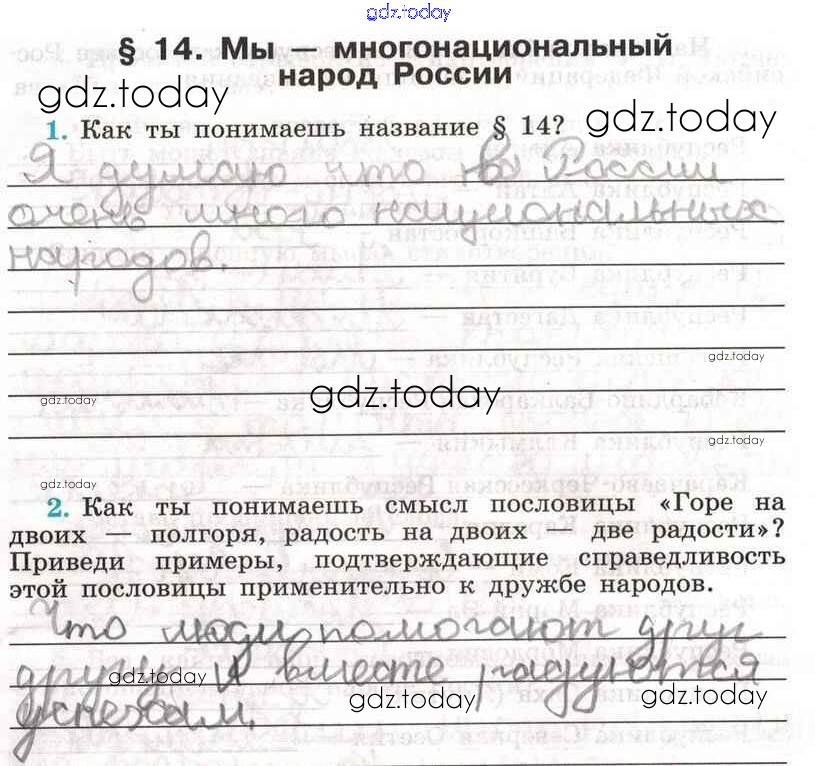 gdz.today
§ 14. Мы — многонациональный
народ России
gdz.today
1. Как ты понимаешь название § 14?
gdz.today
Я думаю что в России
очень много национальных
народов.
gdz.today
gdz.today
gdz.today
gdz.today
gdz.today
2. Как ты понимаешь смысл пословицы «Горе на
двоих — полгоря, радость на двоих две радости»?
Приведи примеры, подтверждающие справедливость
этой пословицы применительно к дружбе народов.
Что люди помогают друг
другу и вместе радуются
gdz.today
успехам.
gdz.today
gdz.today